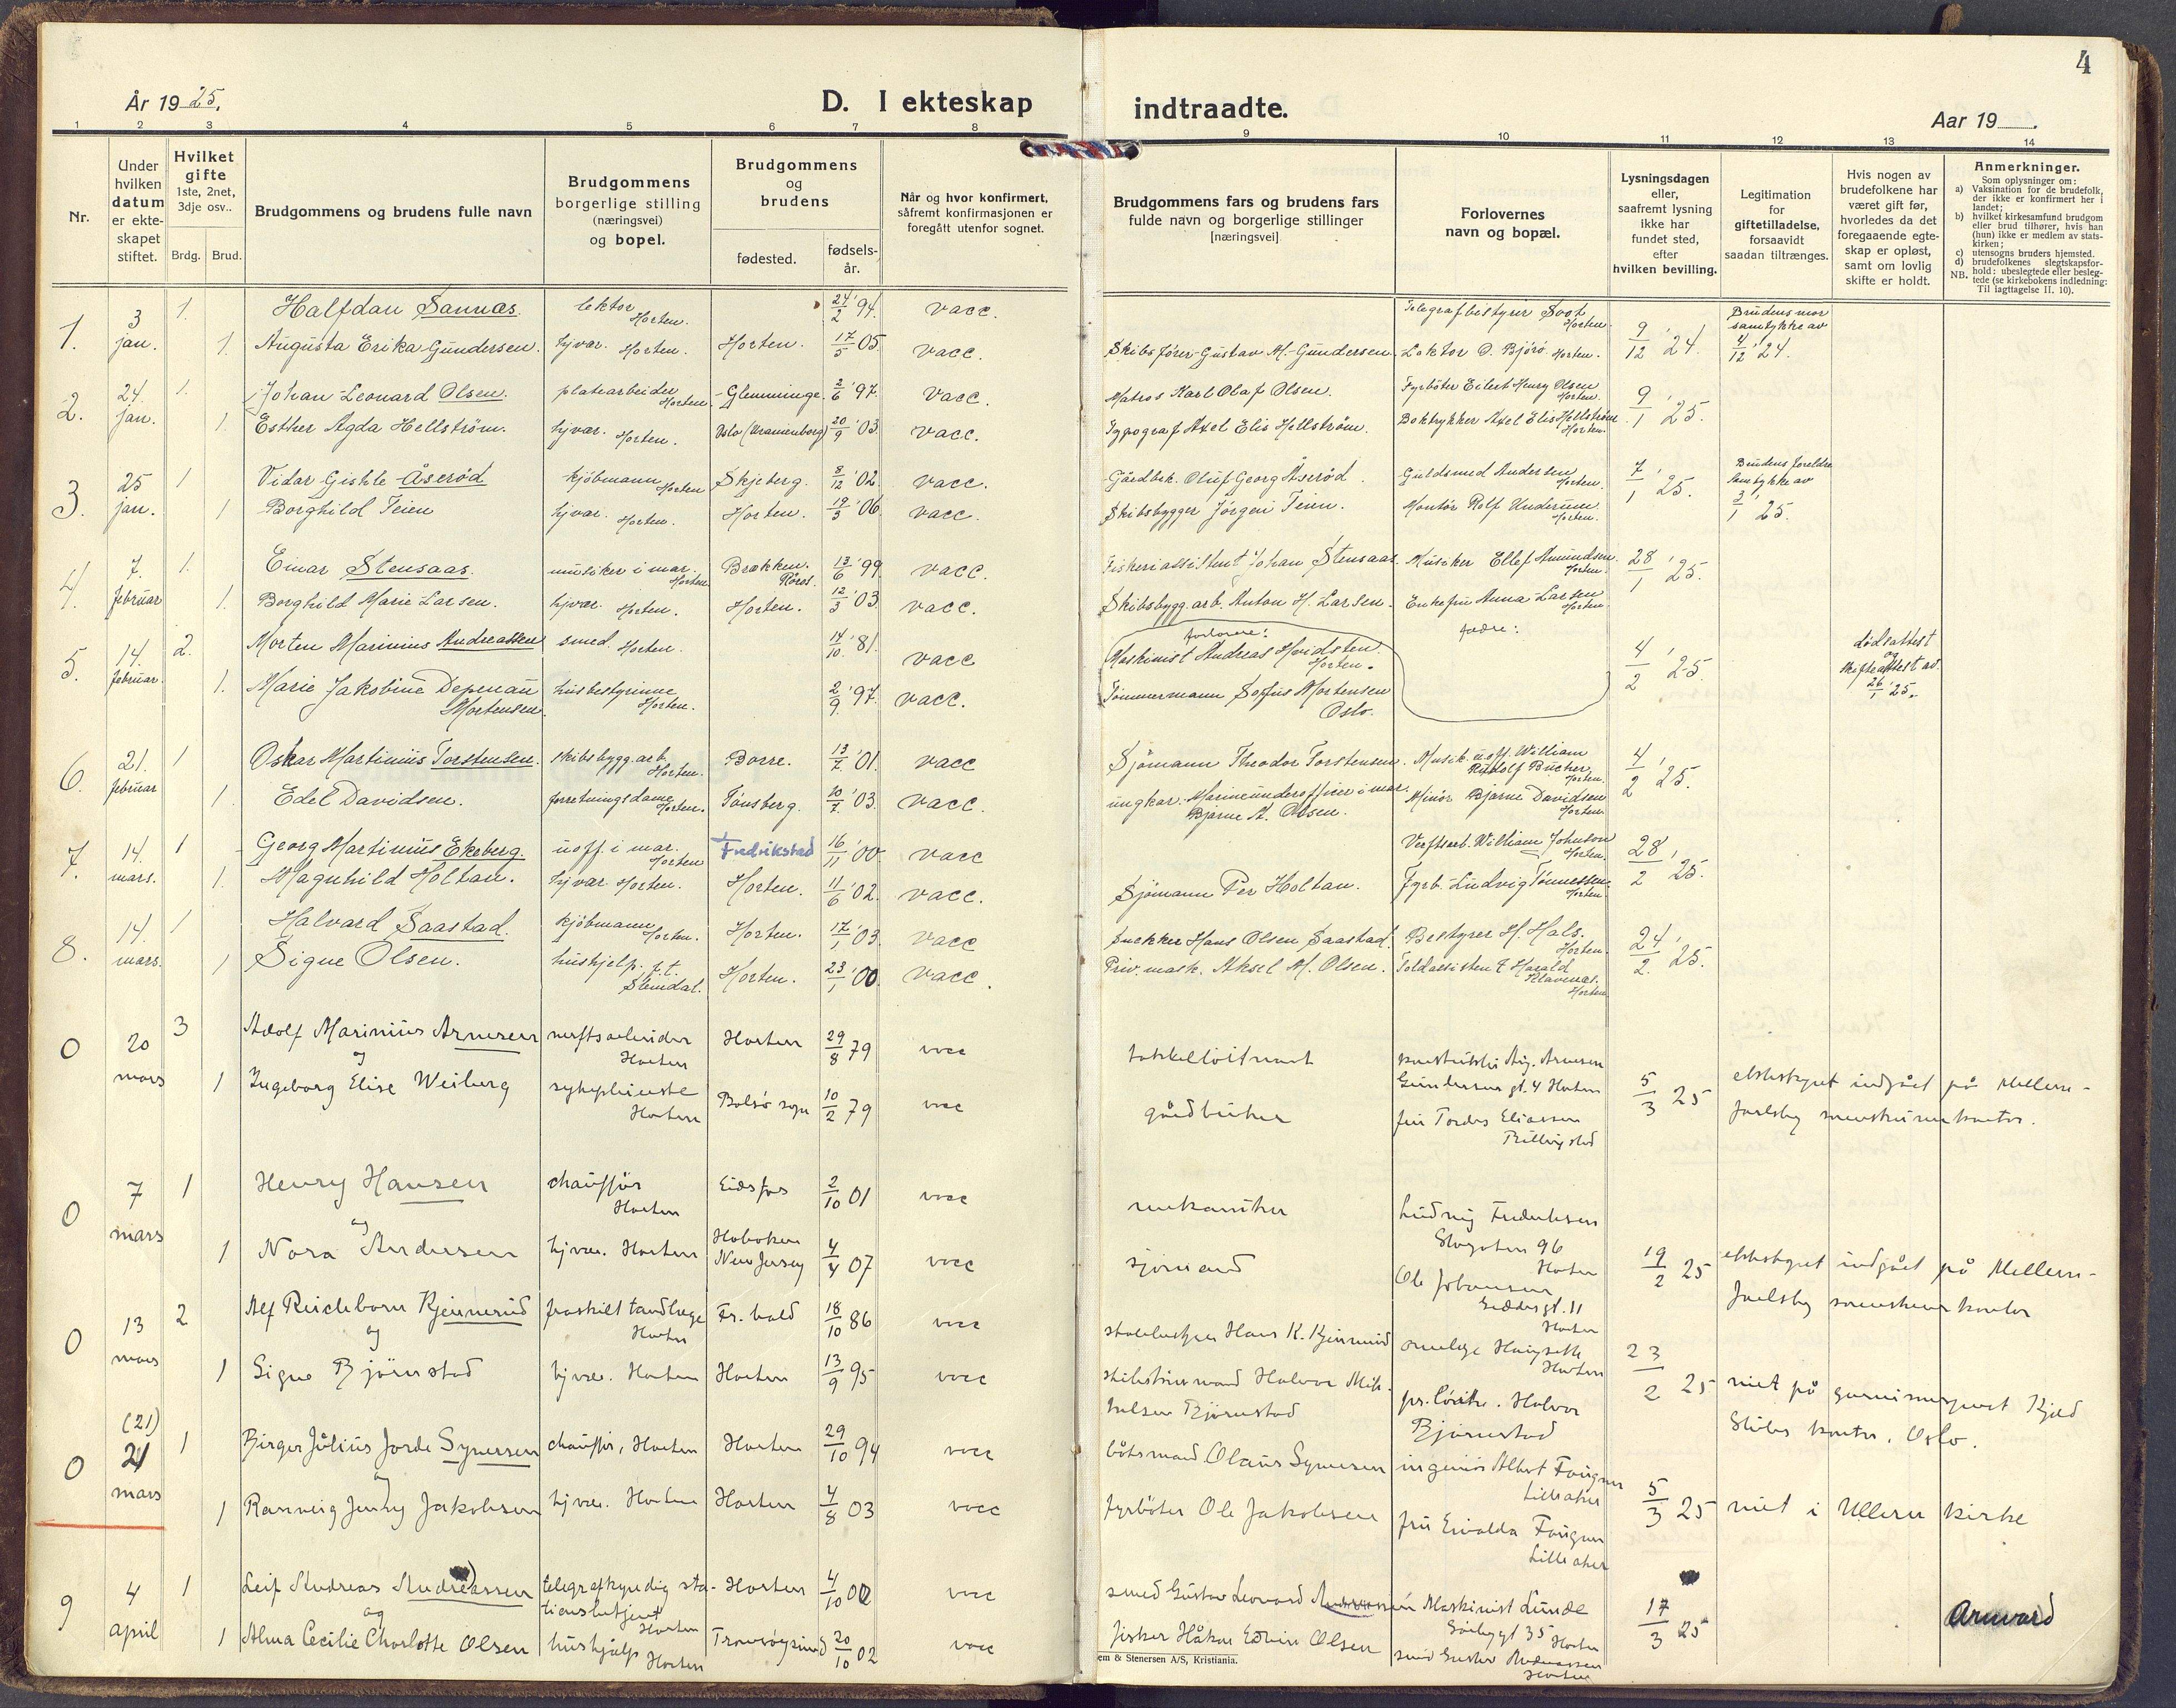 4
År 1925.
D. I ekteskap
indtraadte.
Aar 19
1 2 3 4 5 6 7 8
9 10 11 12 13 14
Nr.
Under hvilken datum er ekte-skapet stiftet.
Hvilket gifte
1ste, 2net, 3dje osv..
Brdg. Brud.
Brudgommens og brudens fulle navn
Brudgommens borgerlige stilling (næringsvei) og bopel.
Brudgommens og brudens
fødested. fødsels-år.
Når og hvor konfirmert, såfremt konfirmasjonen er foregått utenfor sognet.
Brudgommens fars og brudens fars fulde navn og borgerlige stillinger [næringsvei]
Forlovernes navn og bopæl.
Lysningsdagen eller, saafremt lysning ikke har fundet sted, efter hvilken bevilling.
Legitimation for giftetilladelse, forsaavidt saadan tiltrænges.
Hvis nogen av brudefolkene har været gift før, hvorledes da det foregaaende egte-skap er opløst, samt om lovlig skifte er holdt.
Anmerkninger.
Som oplysninger om:
a) Vaksination for de brudefolk, der ikke er konfirmert her i landet;
b) hvilket kirkesamfund brudgom eller brud tilhører, hvis han (hun) ikke er medlem av stats-kirken;
c) utensogns bruders hjemsted.
d) brudefolkenes slegtskapsfor-hold: ubeslegtede eller besleg-tede (se kirkebokens indledning: Til iagttagelse II. 10).
NB.
1. 3 jan. 1. Halfdan Sannes. lektor Horten. 24/2 '94. vacc. Telegrafbestyrer Soot Horten. 9/12 '24. Brudens mor samtykke av 4/12 '24.
1. Augusta Erika Gundersen. hjvær. Horten. Horten. 17/5 '05. vacc. Skibsfører Gustav M. Gundersen. Lektor D. Bjørø. Horten.
2. 24. jan. 1. Johan Leonard Olsen. platearbeider Horten. Glemminge. 2/6 '97. vacc. Matros Karl Olaf Olsen. Fyrbøter Eilert Henry Olsen Horten. 9/1 '25.
1. Esther Agda Hellstrøm. hjvær. Horten. Oslo (Uranienborg) 20/9 '03. vacc. Typograf Axel Elis Hellstrøm. Boktrykker Axel Elis Hellstrøm Horten.
3. 25 jan. 1 Vidar Gishle Åserød kjøbmann Horten Skjeberg. 8/12 '02. vacc. Gårdbr. Oluf Georg Åserød. Guldsmed Andersen Horten. 7/1 '25. Brudens foreldre samtykke av 3/1 '25.
1 Borghild Teien hjvær. Horten. Horten. 19/3 '06. vacc. Skibsbygger Jørgen Teien. Montør Rolf Andersen Horten.
4. 7. februar 1. Einar Stensaas. musiker i mar. Horten Brækken. Røros. 13/6 '99. vacc. Fiskeriassistent Johan Stensaas. Musiker Ellef Amundsen. Horten. 28/1 '25.
1. Borghild Marie Larsen. hjvær. Horten. Horten. 12/3 '03. vacc. Skibsbygg.arb. Anton H. Larsen. Enkefru Anna Larsen Horten
5. 14. februar. 2. Morten Marinius Andreassen smed. Horten. 14/10 '81. vacc forlovere: Maskinist Andreas Hvidsten Horten. fædre: 4/2 '25. dødsattest og skifteattest av 26/1 '25.
1. Marie Jakobine Depenau Mortensen husbestyrinne Horten. 2/9 '97. vacc. Tømmermann Sofus Mortensen Oslo.
6. 21. februar 1 Oskar Martinius Torstensen. skibsbygg.arb. Horten. Borre. 13/7 '01. vacc Sjømann Theodor Torstensen. Musik.uoff. William Rudolf Bücher Horten. 4/2 '25.
1 Edel Davidsen. forretningsdame Horten. Tønsberg. 20/7 '03. vacc. ungkar. Marineunderofficer i mar. Bjarne A. Olsen. Minør Bjarne Davidsen Horten.
7. 14. mars. 1 Georg Martinius Ekeberg. uoff. i mar. Horten Fredrikstad 16/11 '00 vacc Verftsarb. William Johnson Horten. 28/2 '25.
1. Magnhild Holtan. hjvær. Horten. Horten. 11/6 '02. vacc. Sjømann Per Holtan. Fyrb. Ludvig Tønnessen. Horten
8. 14. mars. 1 Halvard Saastad. kjøbmann Horten. Horten. 17/1 '03. vacc Snekker Hans Olsen Saastad. Bestyrer H. Hals. Horten. 24/2 '25.
1 Signe Olsen. hushjelp. p.t. Slemdal. Horten. 23/1 '00. vacc. Priv. mask. Aksel M. Olsen. Toldassistent Harald Klavenes. Horten
0 20 mars 3 Adolf Marinius Arnesen verftsarbeider Horten Horten 29/8 79 vacc takkelløitnant Aug. Arnesen Gundersens gt. 4 Horten 5/3 25 ekteskapet indgået på Mellem-
og
1 Ingeborg Elise Weiberg sykepleierske Horten Bolsø sogn 10/2 79 vacc gårdbruker fru Tordis Eliassen Billingstad Jarlsberg sorenskriverkontor.
0 7 mars 1 Henry Hansen chauffør Horten Eidsfos 2/10 01 vacc mekaniker Ludvig Fredriksen Storgaten 96 Horten 19/2 25 ekteskapet indgået på Mellem-
og
1 Nora Andersen hjvær. Horten Hoboken New Jersey 4/4 07 vacc sjømand Ole Johansen gt. 11 Horten Jarlsberg sorenskriverkontor
0 13 mars 2 Alf Reichborn Kjennerud fraskilt tandlæge Horten Fr. hald 18/10 86 vacc Hans K. Kjennerud Horten 23/2 25 viet på Kjæd
og
1 Signe Bjørnstad hjvær. Horten Horten 13/9 95 vacc skibstømmermand Halvor Mik-kelsen Bjørnstad Halvor Bjørnstad kontor, Oslo.
0 (21) 21 mars 1 Birger Julius Jorde Synnesen chauffør, Horten Horten 29/10 94 vacc båtsmand Olaus Synnesen ingeniør Albert Fougner Lilleaker 5/3 25 viet i Ullern Kirke
og
1 Rannveig Jenny Jakobsen hjvær. Horten Horten 4/8 03 vacc fyrbøter Ole Jakobsen fru Fougner Lilleaker
9 4 april 1 Leif Andreas Andreassen telegrafkyndig sta-tionsbetjent Horten Horten 4/10 00 vacc smed Gustav Leonard Maskinist Lunde 35 Horten 17/3 25 Arnvard
og
1 Alma Cecilie Charlotte Olsen hushjælp Horten Tromsøysund 20/10 02 vacc fisker Håkon Edvin Olsen smed Gustav Andreassen Horten
em & Stenersen A/S, Kristiania.